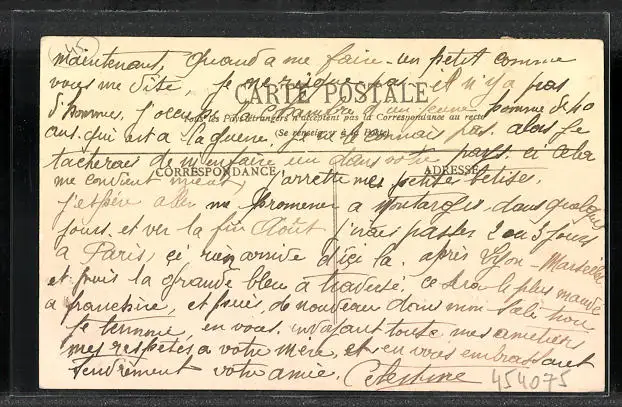 45
maintenant. Quand a me faire un petit comme
vous me dite, je ne risque pas il n'y a pas
d'hommes, j'occupe la chambre d'un jeune homme de 40
CARTE POSTALE
Tous les Pays étrangers n'acceptent pas la Correspondance au recto
(Se renseigner à la Poste)
ans. qui est a la guerre. je ne le connais pas. alors je
tacherais de m'en faire un dans votre pays. ci cela
CORRESPONDANCE
ADRESSE
me convient mieux, j'arrette mes petites betises.
j'espère aller me promener a Montargis, dans quelques
jours. et ver la fin Août j'irais passer 2 ou 3 jours
a Paris, ci rien arrive d'ici la. après Lyon - Marseille
et puis la grande bleu a traversé. ce sera le plus maudit
a franchire, et puis de nouveau dans mon sale trou
je termine, en vous envoyant toute mes amitiés
mes respétés a votre mère, et en vous embrassant
tendrement votre amie. Celestine
454075